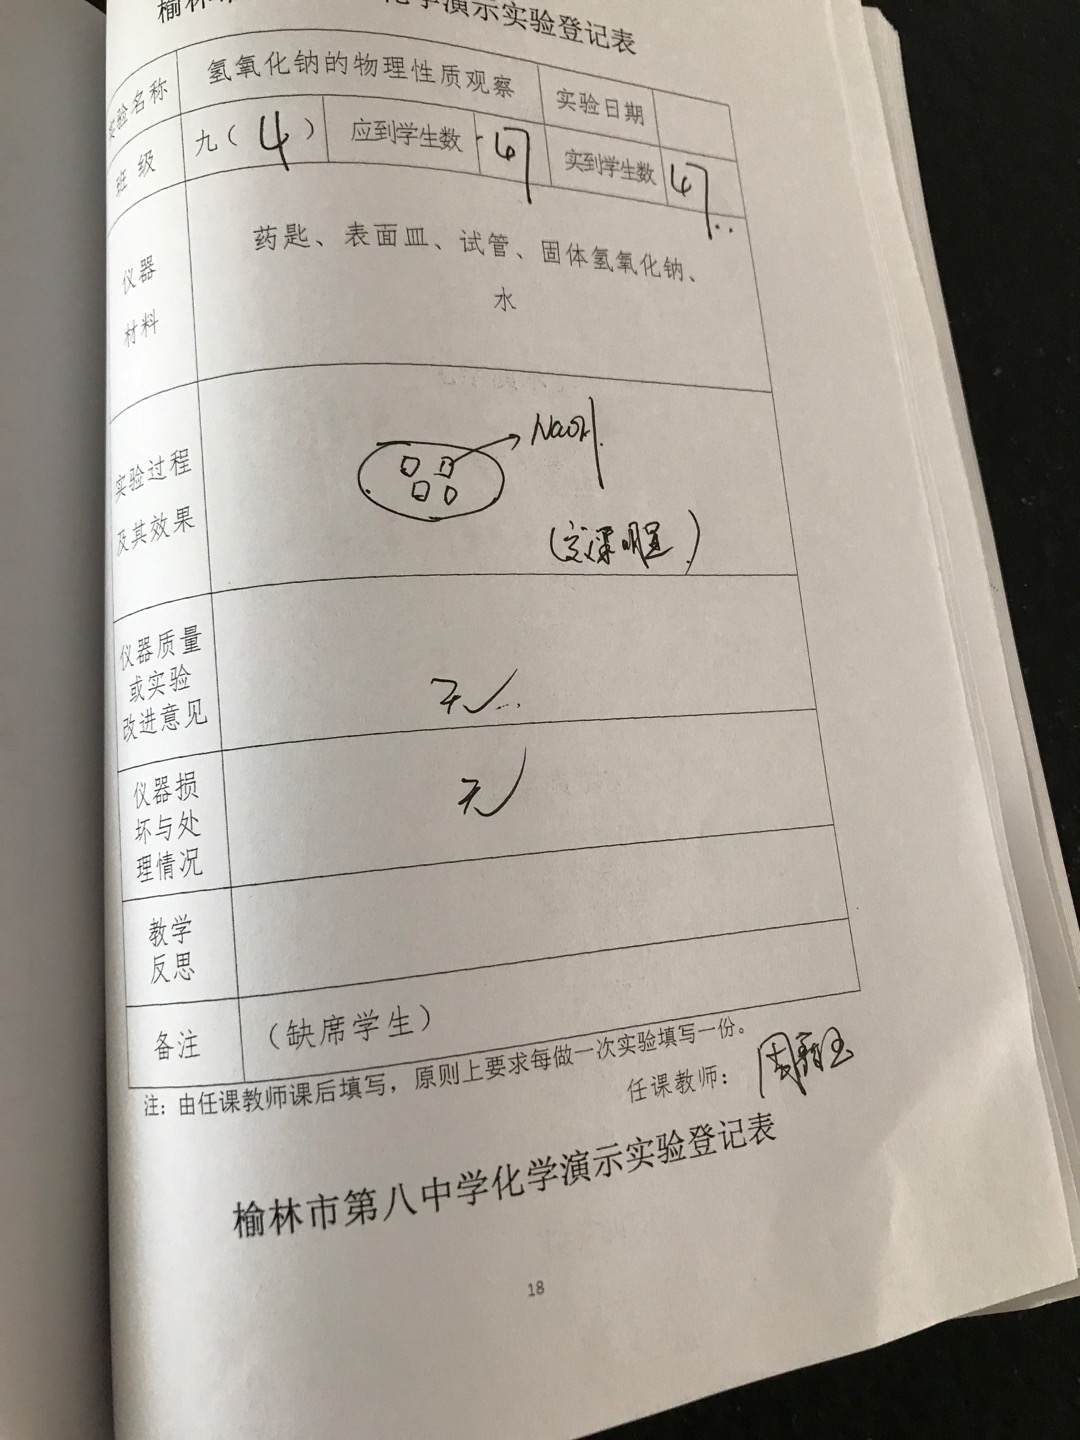 化学演示实验登记表
实验名称 氢氧化钠的物理性质观察 实验日期
班级 九（4） 应到学生数 47 实到学生数 47
仪器
材料
药匙、表面皿、试管、固体氢氧化钠、
水
实验过程
及其效果
NaOH
（实课明显）
仪器质量
或实验
改进意见
无
仪器损
坏与处
理情况
无
教学
反思
备注 （缺席学生）
注：由任课教师课后填写，原则上要求每做一次实验填写一份。
任课教师：
榆林市第八中学化学演示实验登记表
18